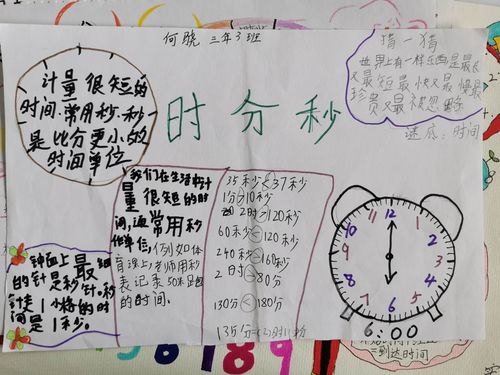 何晓 三年3班
猜一猜
世界上有一样东西是最长
又最短最快又最慢最
珍贵又最被忽略
谜底:时间
计量很短的
时间.常用秒.秒
是比分更小的
时间单位
时分秒
我们在生活中计
量很短的时
间,通常用秒
作单位,例如体
育课上,老师用秒
表记录50米跑
的时间.
35秒<37秒
1分>10秒
2时>120秒
60秒<120秒
240秒>160秒
2时>80分
130分<180分
钟面上最细
的针是秒针.秒
针走1小格的时
间是1秒.
12
1
2
3
4
5
6
7
8
9
10
11
6:00
到达时间